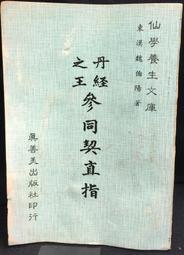 仙學養生文庫
東漢魏伯陽著
丹經之王
參同契直指
真善美出版社印行